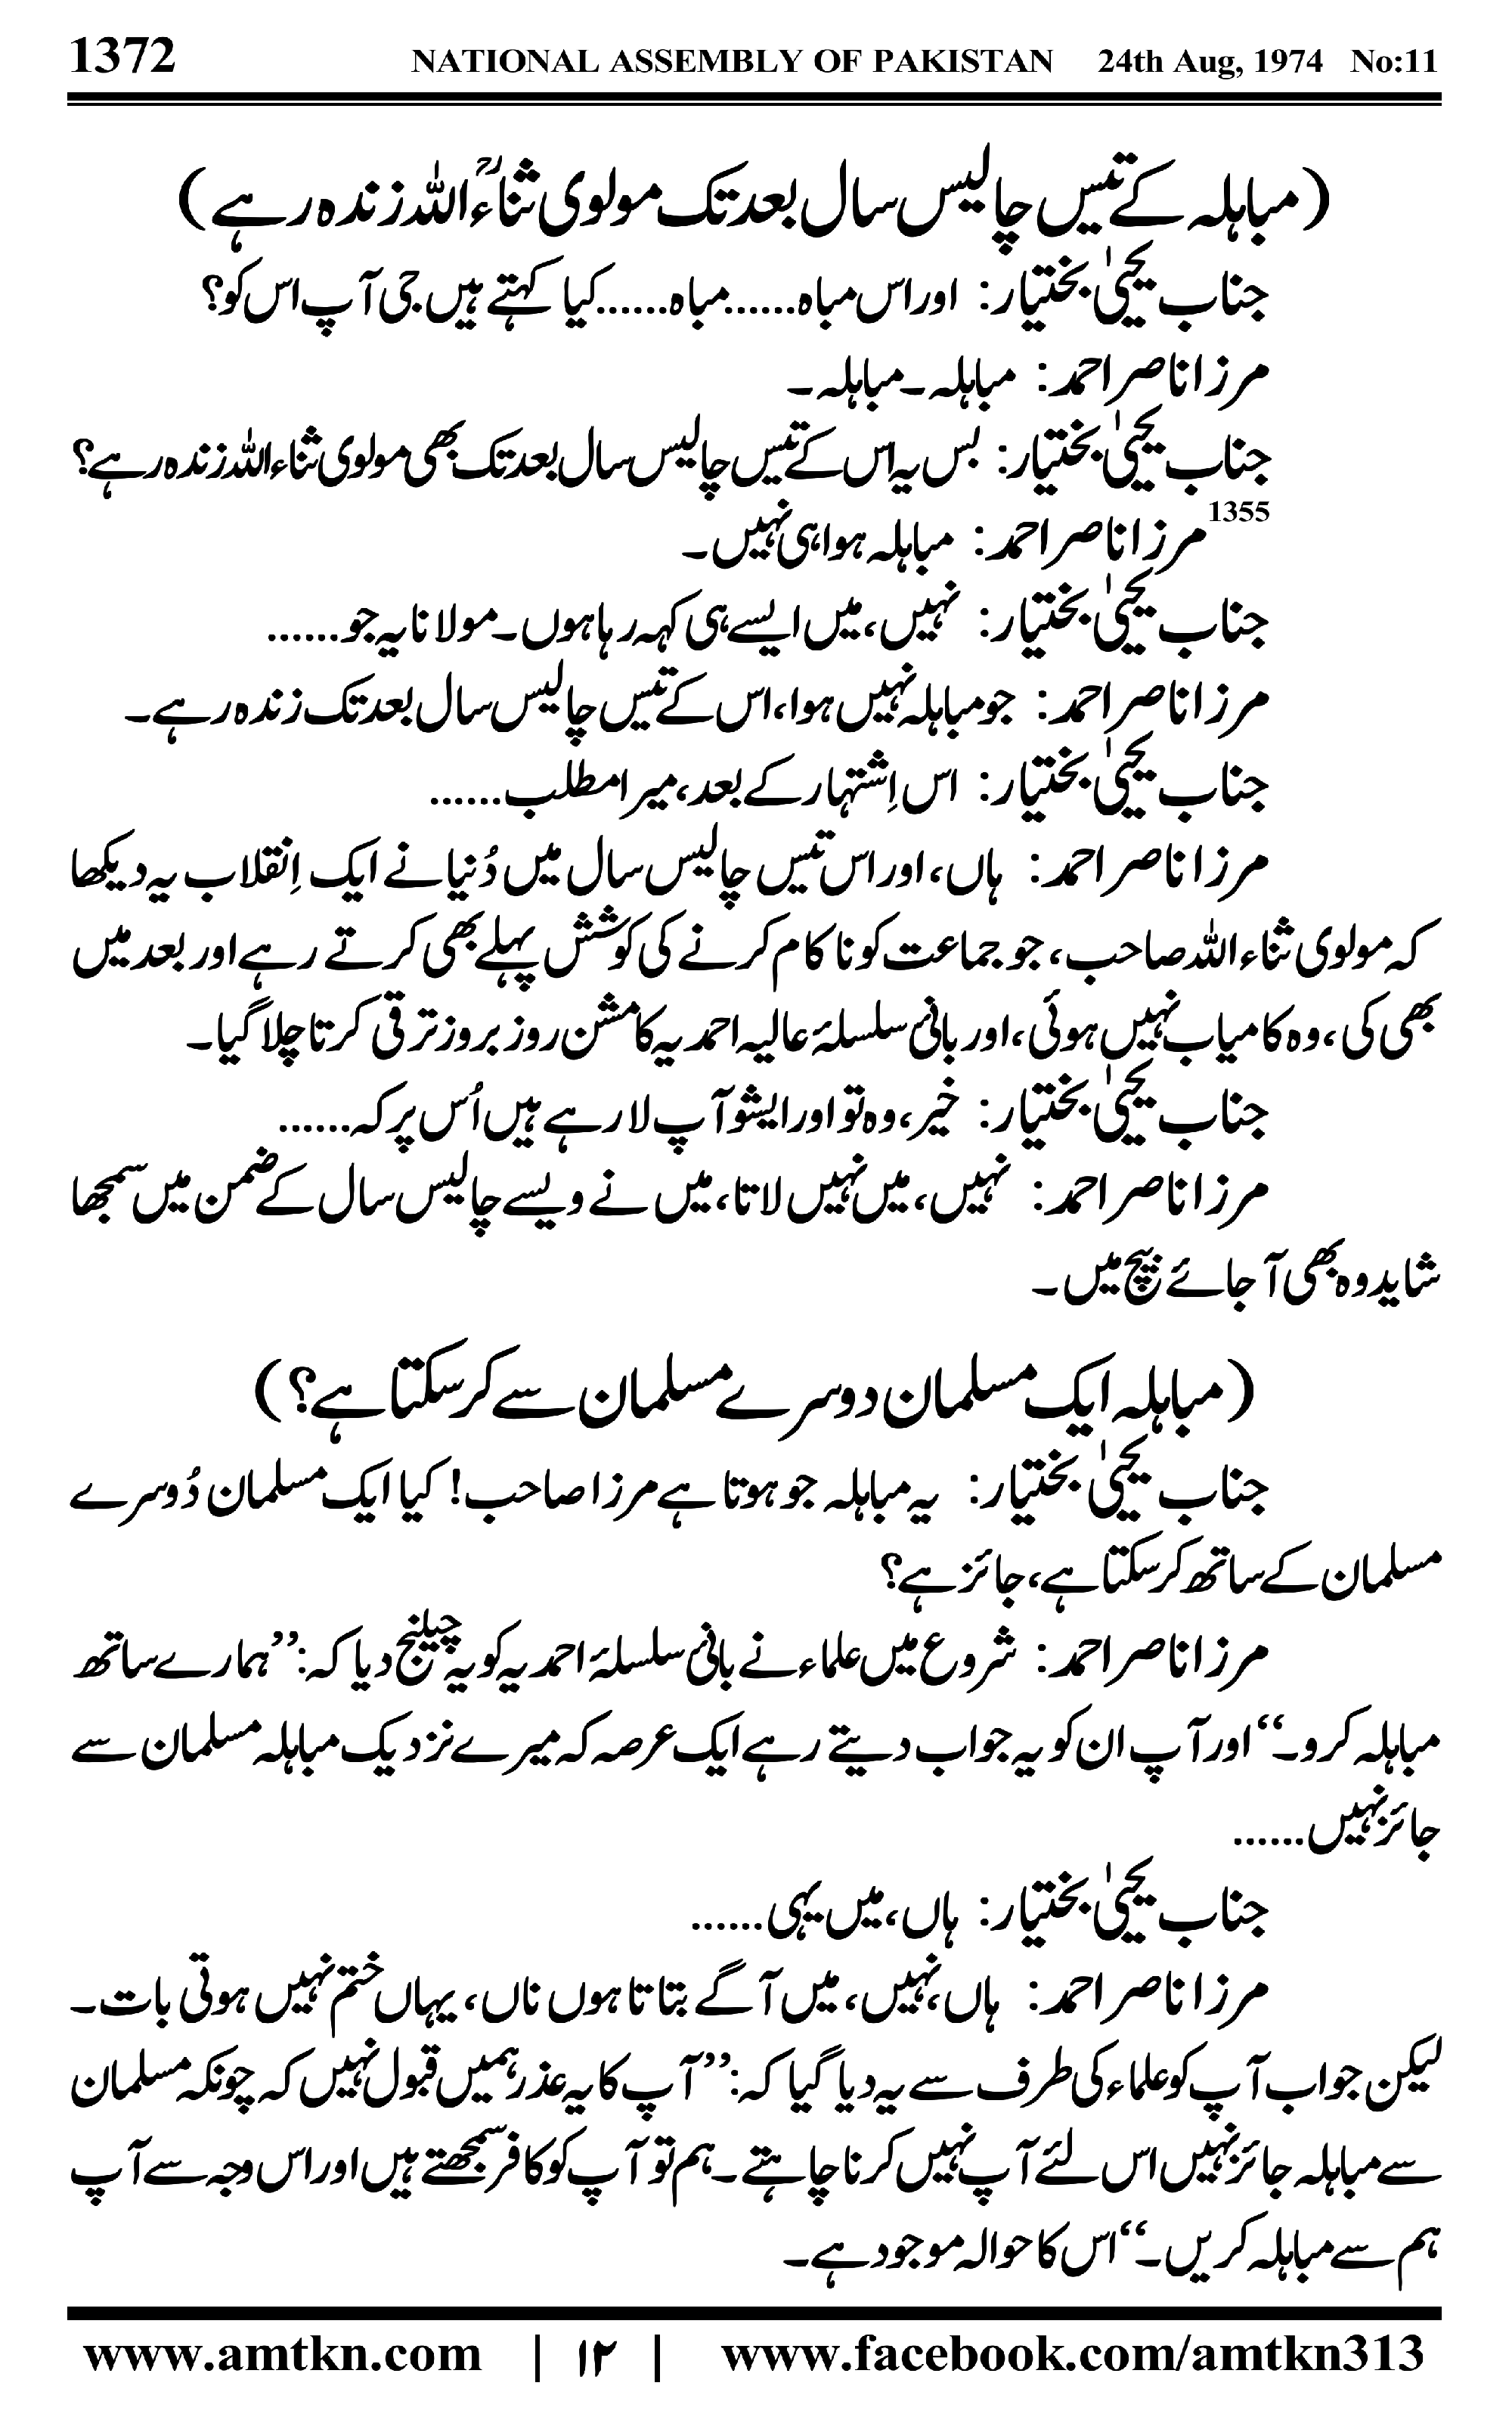 1372 NATIONAL ASSEMBLY OF PAKISTAN 24th Aug, 1974 No:11
(مباہلہ کے تیس چالیس سال بعد تک مولوی ثناءؒ اللہ زندہ رہے)
جناب یحییٰ بختیار: اور اس مباہ......مباہ......کیا کہتے ہیں جی آپ اس کو؟
مرزا ناصر احمد: مباہلہ۔ مباہلہ۔
جناب یحییٰ بختیار: بس یہ اس کے تیس چالیس سال بعد تک بھی مولوی ثناء اللہ زندہ رہے؟
1355 مرزا ناصر احمد: مباہلہ ہوا ہی نہیں۔
جناب یحییٰ بختیار: نہیں، میں ایسے ہی کہہ رہا ہوں۔ مولانا یہ جو......
مرزا ناصر احمد: جو مباہلہ نہیں ہوا، اس کے تیس چالیس سال بعد تک زندہ رہے۔
جناب یحییٰ بختیار: اس اِشتہار کے بعد، میرا مطلب......
مرزا ناصر احمد: ہاں، اور اس تیس چالیس سال میں دُنیا نے ایک اِنقلاب یہ دیکھا
کہ مولوی ثناء اللہ صاحب، جو جماعت کو ناکام کرنے کی کوشش پہلے بھی کرتے رہے اور بعد میں
بھی کی، وہ کامیاب نہیں ہوئی، اور بانیٔ سلسلۂ عالیہ احمدیہ کا مشن روز بروز ترقی کرتا چلا گیا۔
جناب یحییٰ بختیار: خیر، وہ تو اور ایشو آپ لا رہے ہیں اُس پر کہ......
مرزا ناصر احمد: نہیں، میں نہیں لاتا، میں نے ویسے چالیس سال کے ضمن میں سمجھا
شاید وہ بھی آجائے بیچ میں۔
(مباہلہ ایک مسلمان دوسرے مسلمان سے کرسکتا ہے؟)
جناب یحییٰ بختیار: یہ مباہلہ جو ہوتا ہے مرزا صاحب! کیا ایک مسلمان دُوسرے
مسلمان کے ساتھ کرسکتا ہے، جائز ہے؟
مرزا ناصر احمد: شروع میں علماء نے بانیٔ سلسلۂ احمدیہ کو یہ چیلنج دیا کہ: ’’ہمارے ساتھ
مباہلہ کرو۔‘‘ اور آپ ان کو یہ جواب دیتے رہے ایک عرصہ کہ میرے نزدیک مباہلہ مسلمان سے
جائز نہیں......
جناب یحییٰ بختیار: ہاں، میں یہی......
مرزا ناصر احمد: ہاں، نہیں، میں آگے بتاتا ہوں ناں، یہاں ختم نہیں ہوتی بات۔
لیکن جواب آپ کو علماء کی طرف سے یہ دیا گیا کہ: ’’آپ کا یہ عذر ہمیں قبول نہیں کہ چونکہ مسلمان
سے مباہلہ جائز نہیں اس لئے آپ نہیں کرنا چاہتے۔ ہم تو آپ کو کافر سمجھتے ہیں اور اس وجہ سے آپ
ہم سے مباہلہ کریں۔‘‘ اس کا حوالہ موجود ہے۔
www.amtkn.com | ۱۲ | www.facebook.com/amtkn313